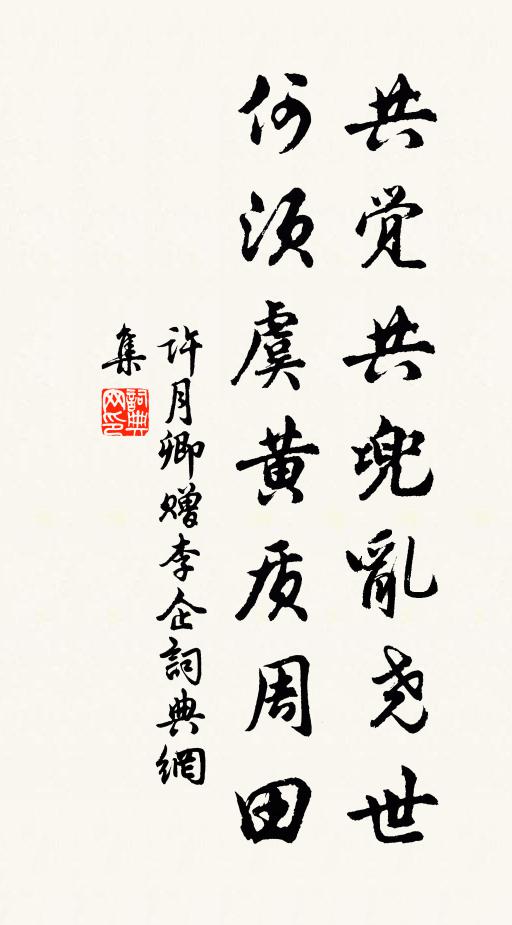 共觉共兜亂尧世
何须虞黄质周田
许月卿赠李企詞典網
集
詞典
网印